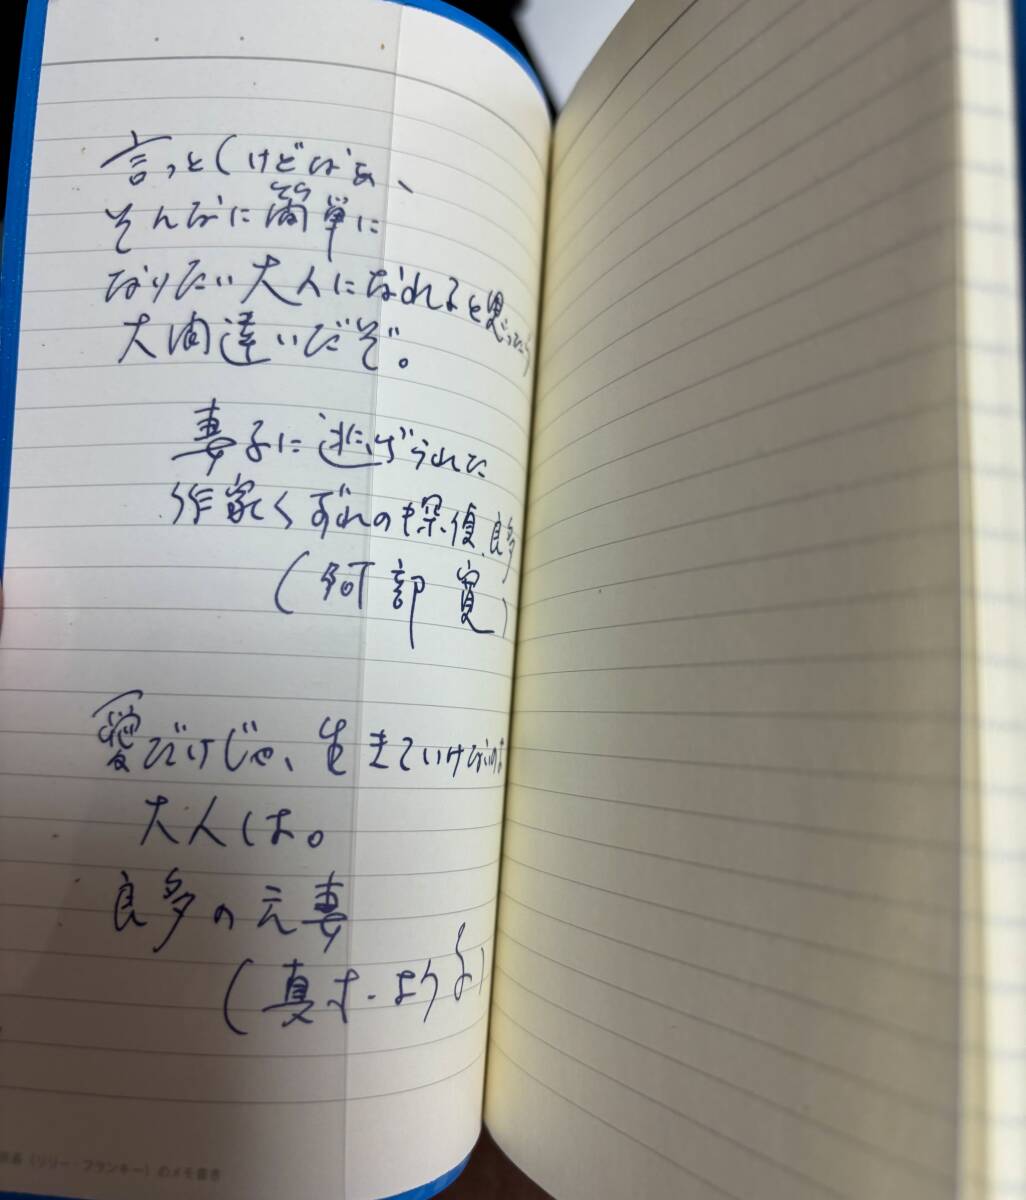 言っとくけどなぁ、
そんなに簡単に
なりたい大人になれると思ったら
大間違いだぞ。
妻子に逃げられた
作家くずれの探偵、良多
(阿部寛)
愛だけじゃ、生きていけないのよ
大人は。
良多の元妻
(真木よう子)
(リリー・フランキー)のメモ書き